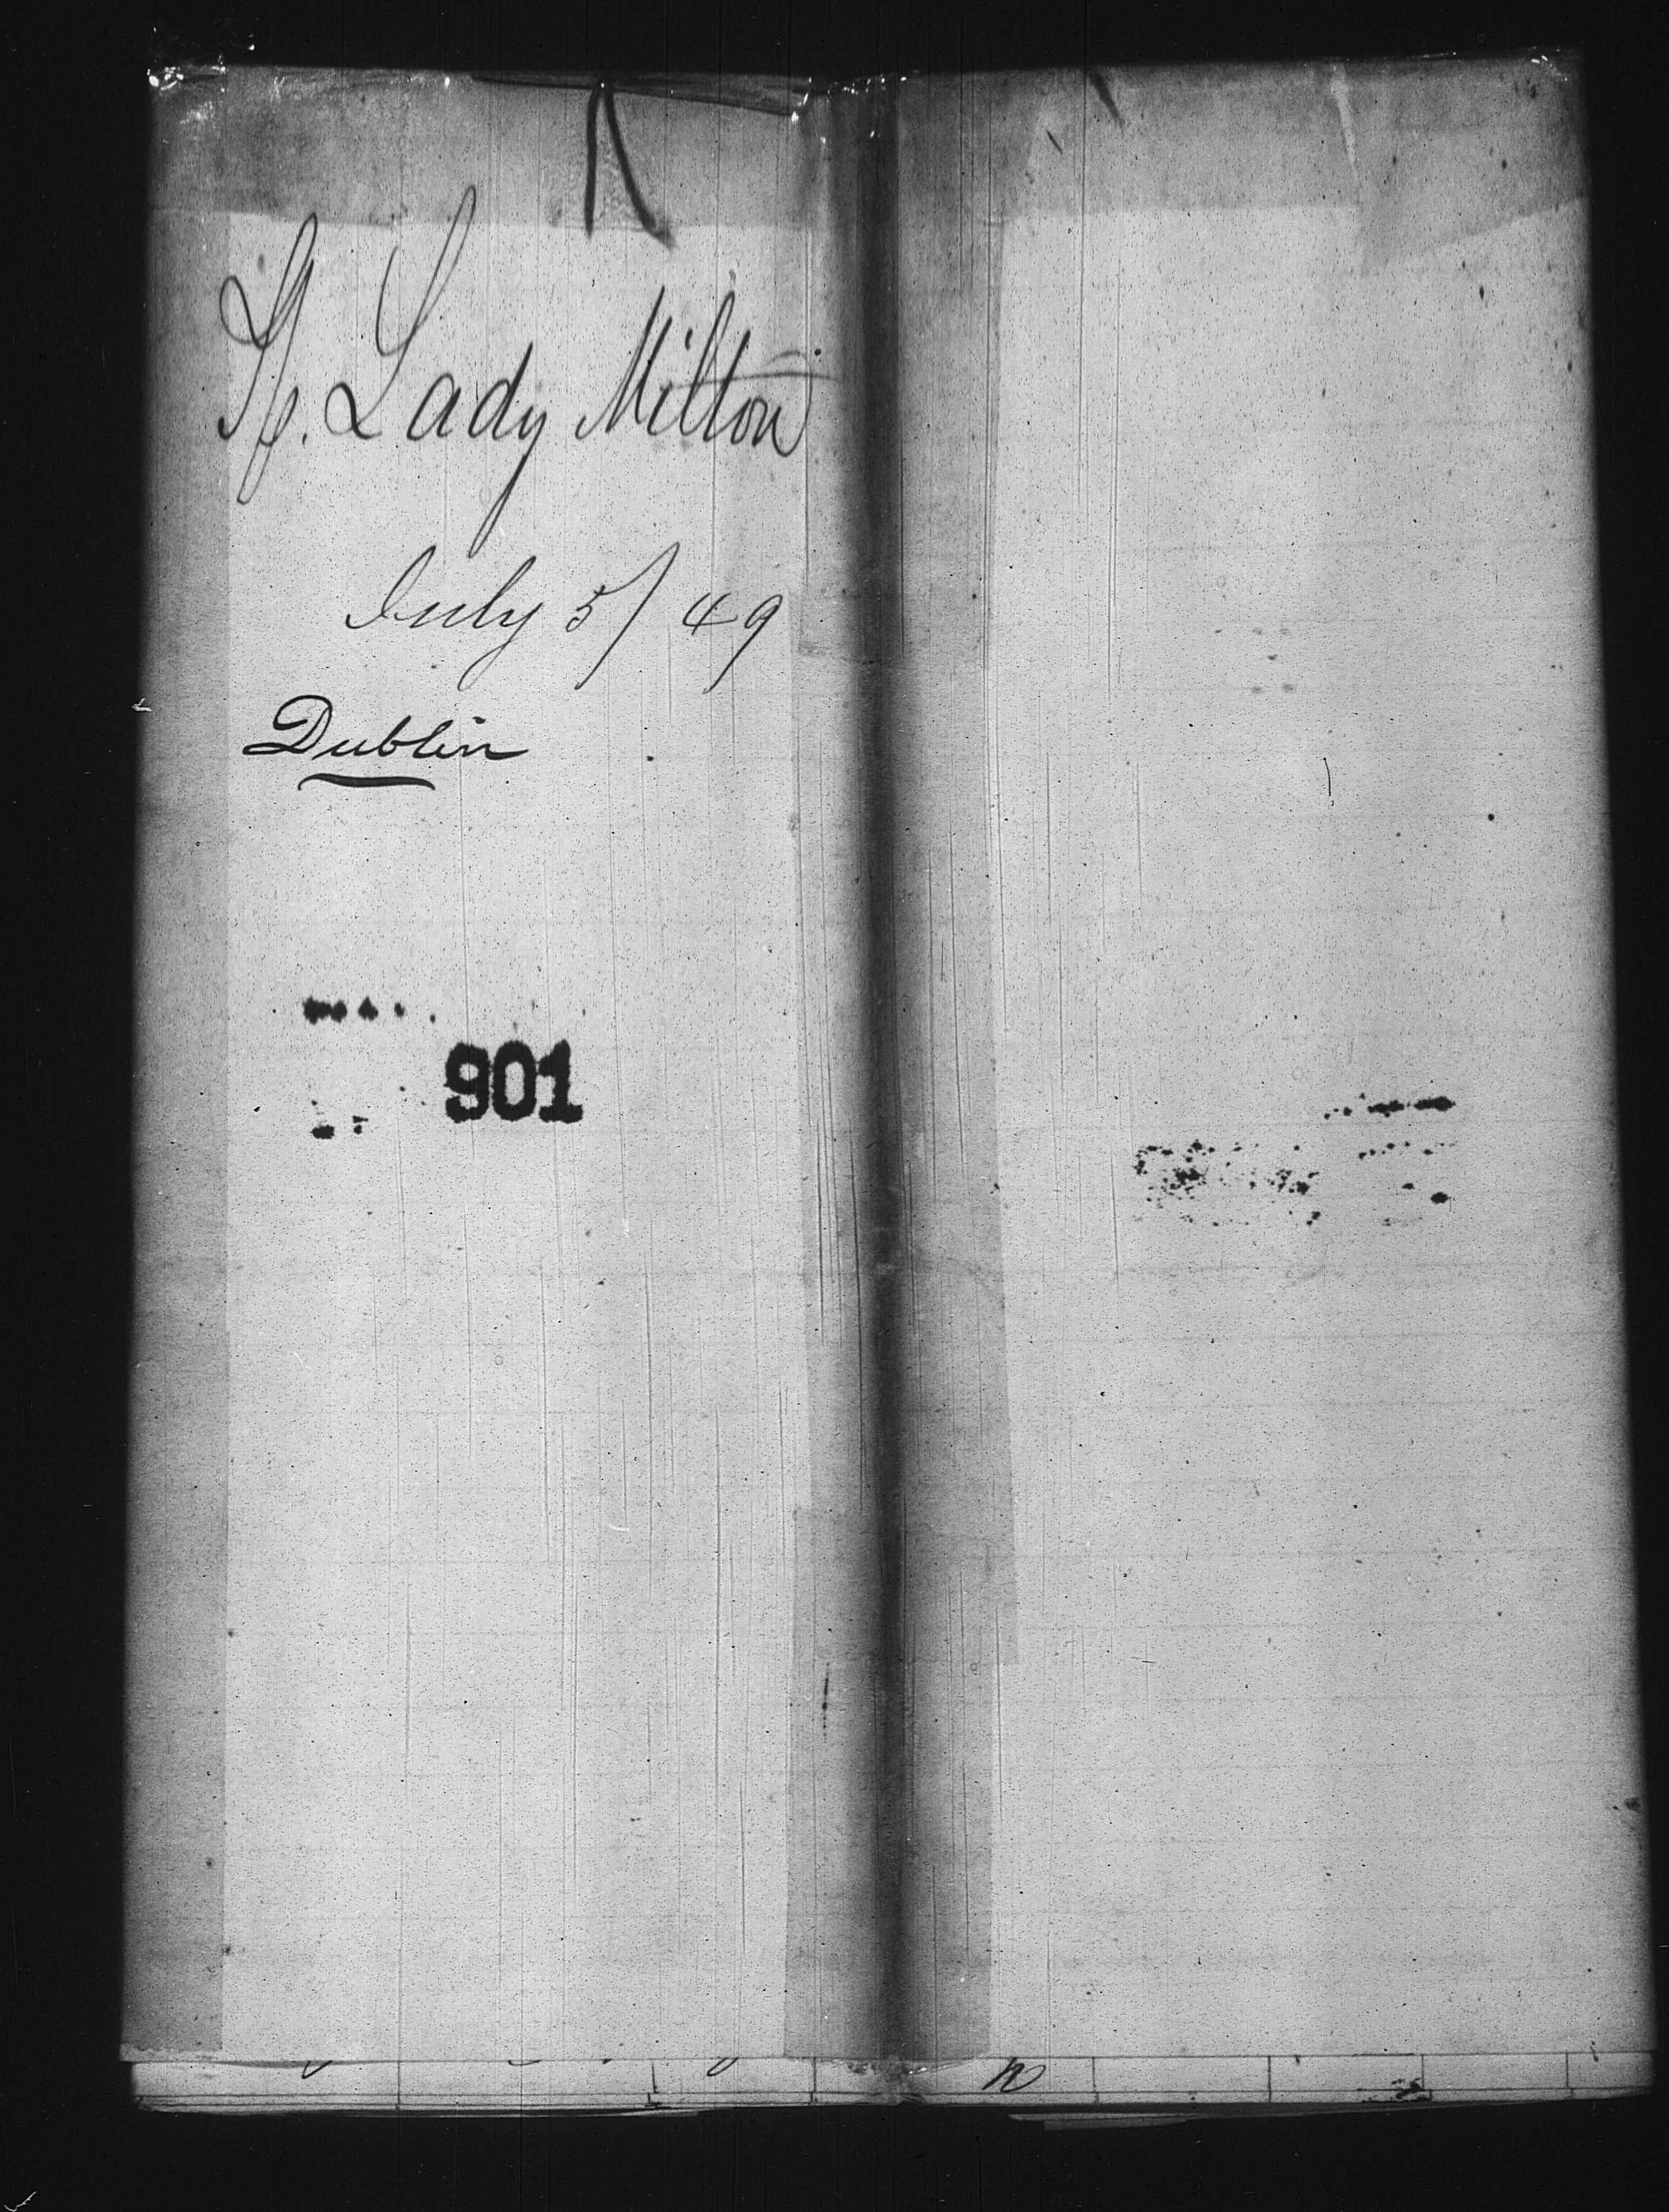 Sp. Lady Milton
July 5/49
Dublin
901